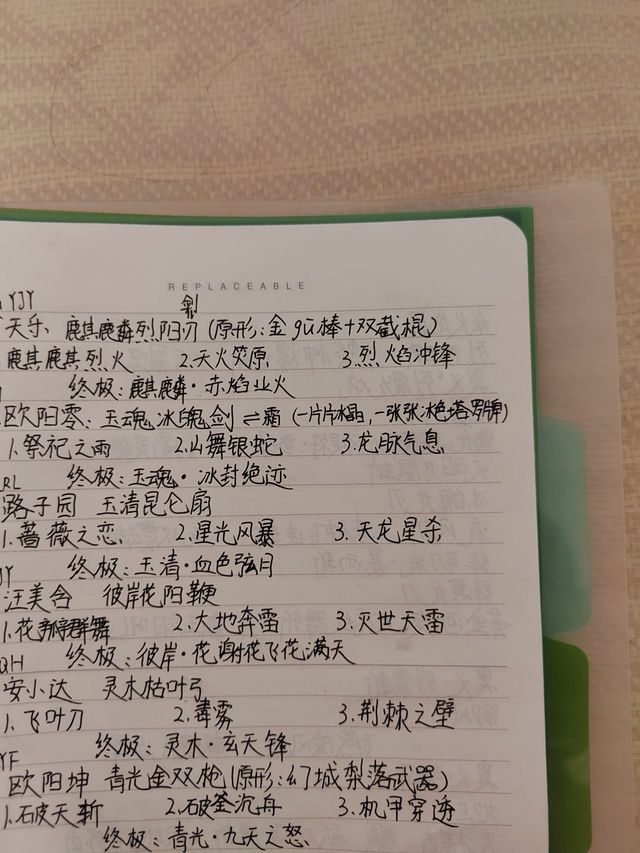 REPLACEABLE
YJY
剑
天乐 麒麟烈阳刃(原形:金gū棒+双截棍)
麒麟烈火 2.天火焚原 3.烈焰冲锋
终极:麒麟·赤焰业火
欧阳零:玉魂冰魄剑⇌霜(一片片水晶,一张张冰色塔罗牌)
1.祭祀之雨 2.山舞银蛇 3.龙脉气息
RL 终极:玉魂·冰封绝迹
路子园 玉清昆仑扇
1.蔷薇之恋 2.星光风暴 3.天龙星杀
终极:玉清·血色弦月
汪美含 彼岸花阳鞭
1.花瓣群舞 2.大地奔雷 3.灭世天雷
QH 终极:彼岸·花谢花飞花满天
安小达 灵木枯叶弓
1.飞叶刀 2.毒雾 3.荆棘之壁
YF 终极:灵木·玄天锋
欧阳坤 青光金双枪(原形:幻城梨落武器)
1.破天斩 2.破釜沉舟 3.机甲穿透
终极:青光·九天之怒